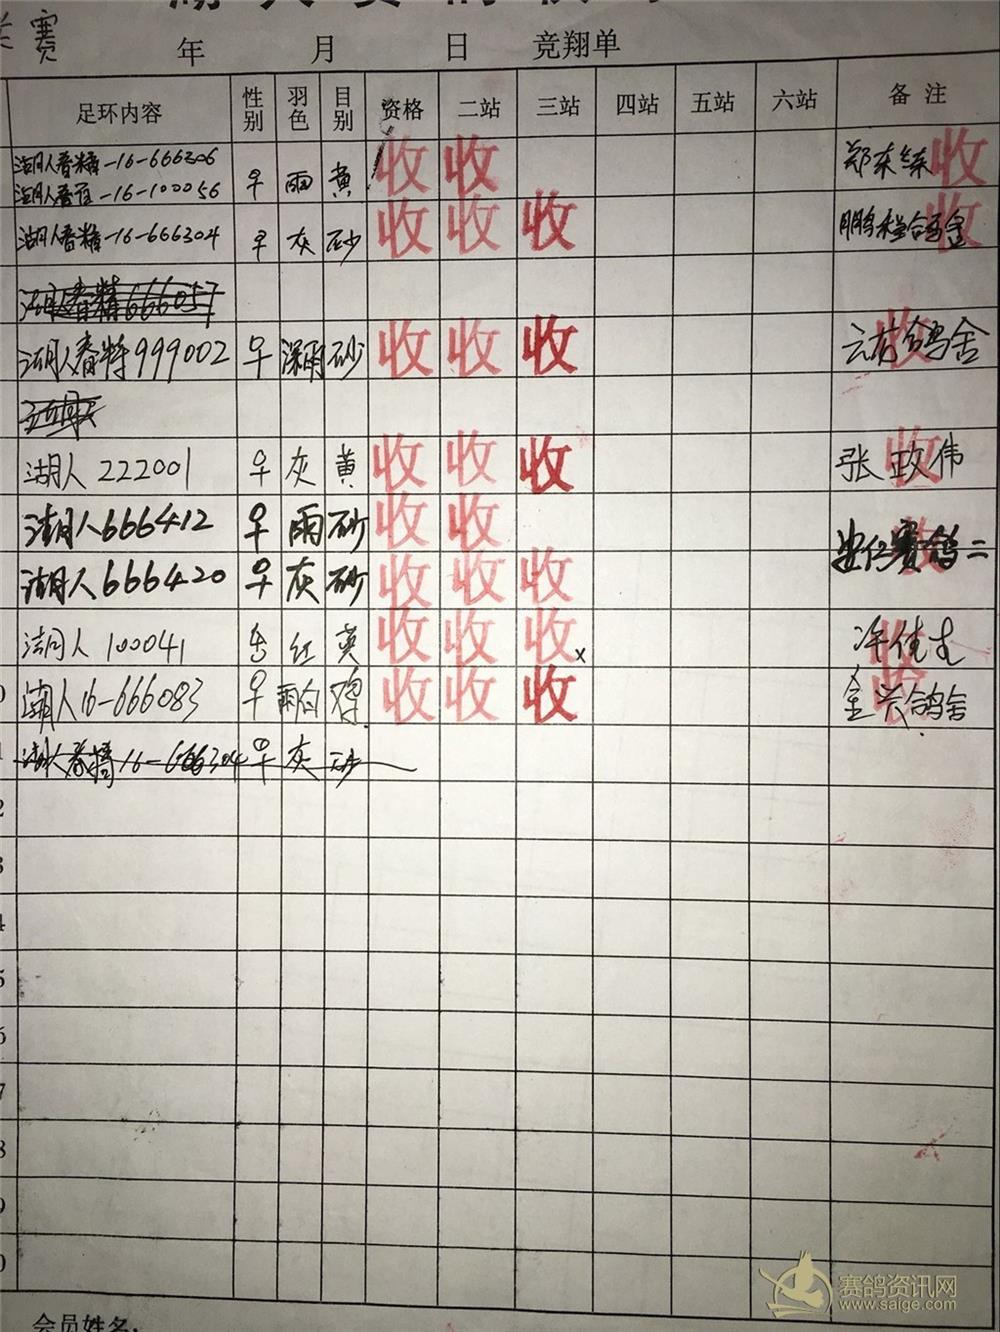 赛
年 月 日 竞翔单
足环内容 性别 羽色 目别 资格 二站 三站 四站 五站 六站 备注
湖人春精-16-666306
湖人春 -16-100056 ♀ 雨 黄 收 收 收
湖人春精-16-666304 ♀ 灰 砂 收 收 收 收
湖人春精666057
湖人春特999002 ♀ 深雨 砂 收 收 收 收 鸽舍
湖人 222001 ♀ 灰 黄 收 收 收 张政伟 收
湖人666412 ♀ 雨 砂 收 收 收
湖人666420 ♀ 灰 砂 收 收 收
湖人 100041 红 黄 收 收 收 x 收
湖人16-666083 ♀ 雨白 收 收 收 金兴鸽舍 收
湖人春精16-666304 ♀ 灰 砂
2
3
4
5
6
7
8
9
0
会员姓名
赛鸽资讯网
www.saige.com